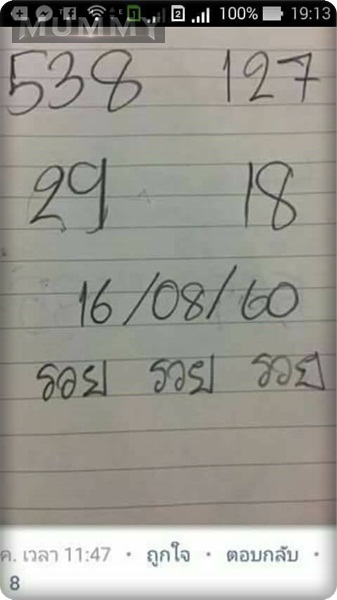 100% 19:13
MUMMY
538 127
29 18
16/08/60
รวย รวย รวย
ค. เวลา 11:47 · ถูกใจ · ตอบกลับ ·
8